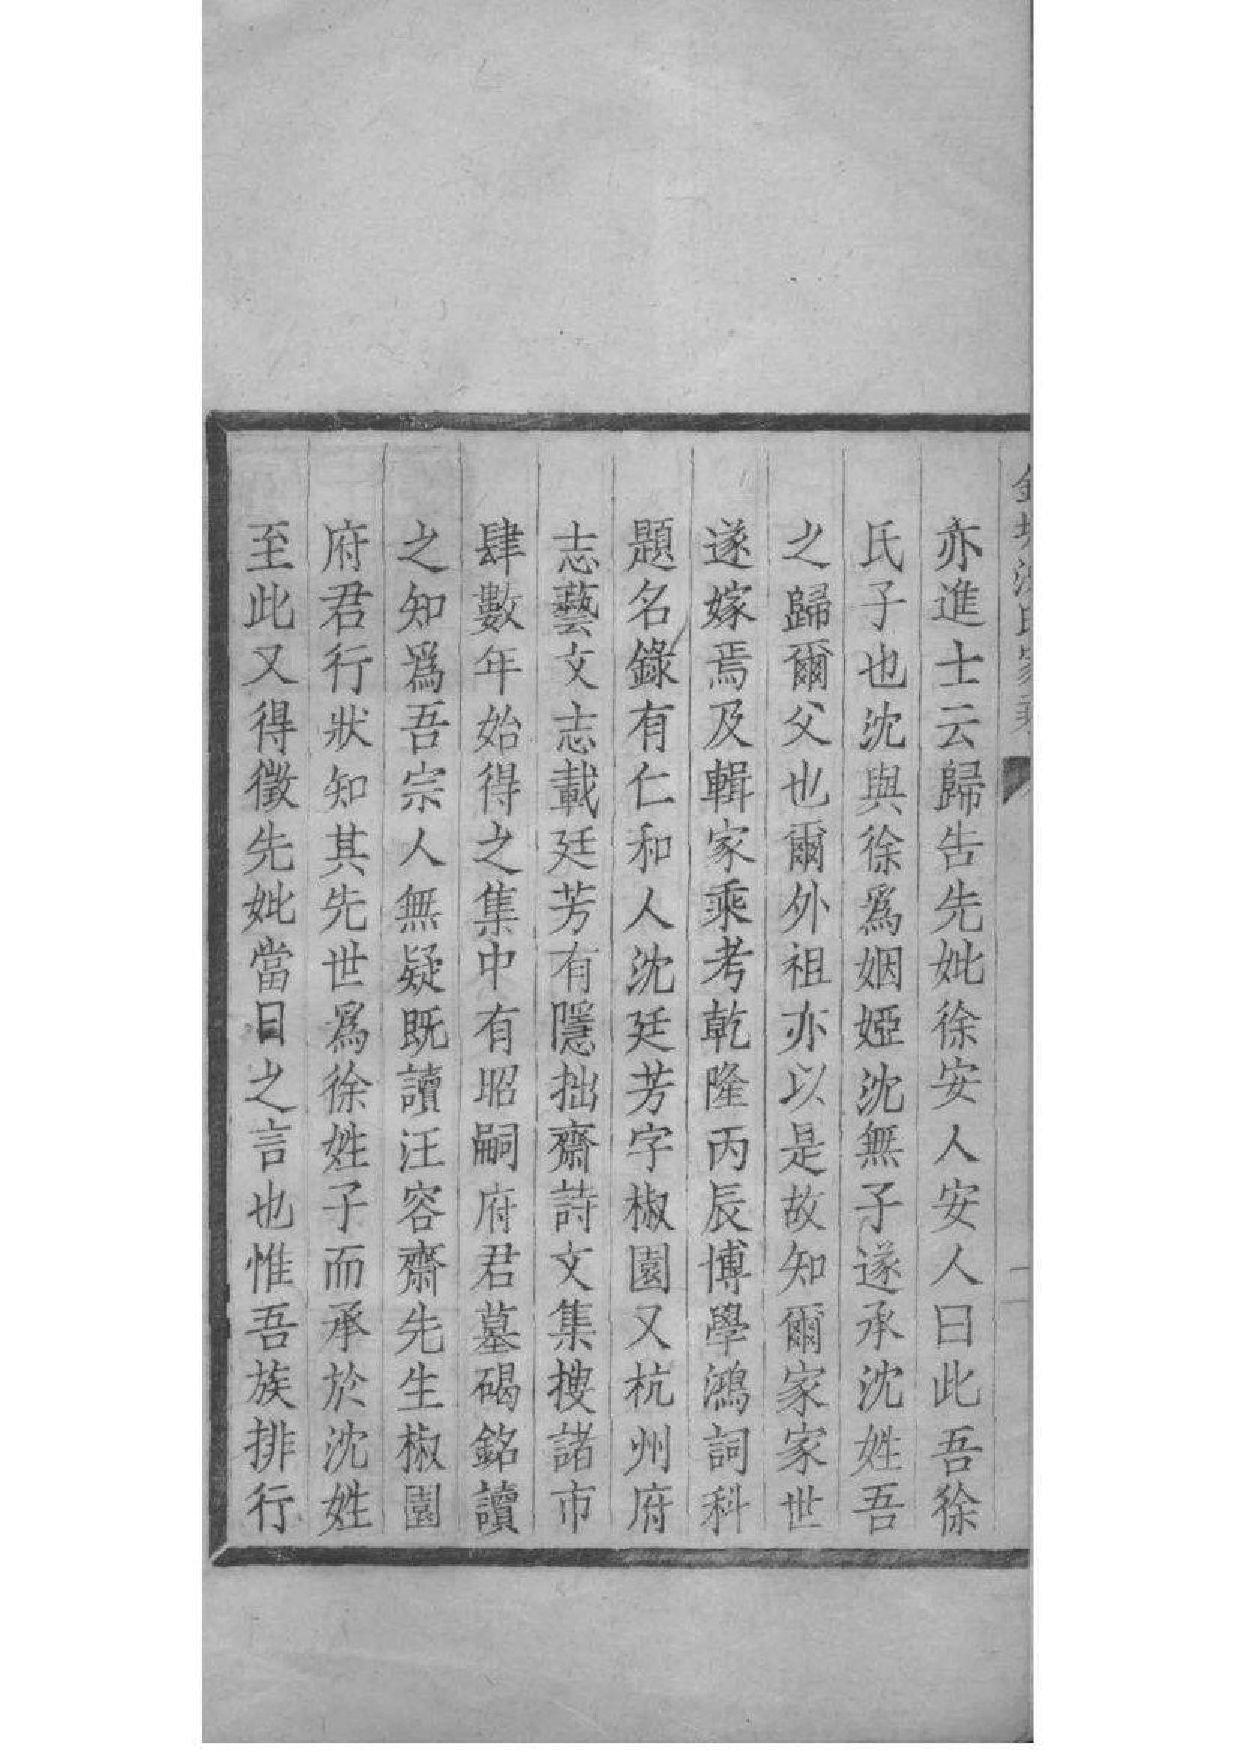 亦進士云歸告先妣徐安人安人曰此吾徐
氏子也沈與徐爲姻婭沈無子遂承沈姓吾
之歸爾父也爾外祖亦以是故知爾家家世
遂嫁焉及輯家乘考乾隆丙辰博學鴻詞科
題名錄有仁和人沈廷芳字椒園又杭州府
志藝文志載廷芳有隱拙齋詩文集搜諸市
肆數年始得之集中有昭嗣府君墓碣銘讀
之知爲吾宗人無疑既讀汪容齋先生椒園
府君行狀知其先世爲徐姓子而承於沈姓
至此又得徵先妣當日之言也惟吾族排行